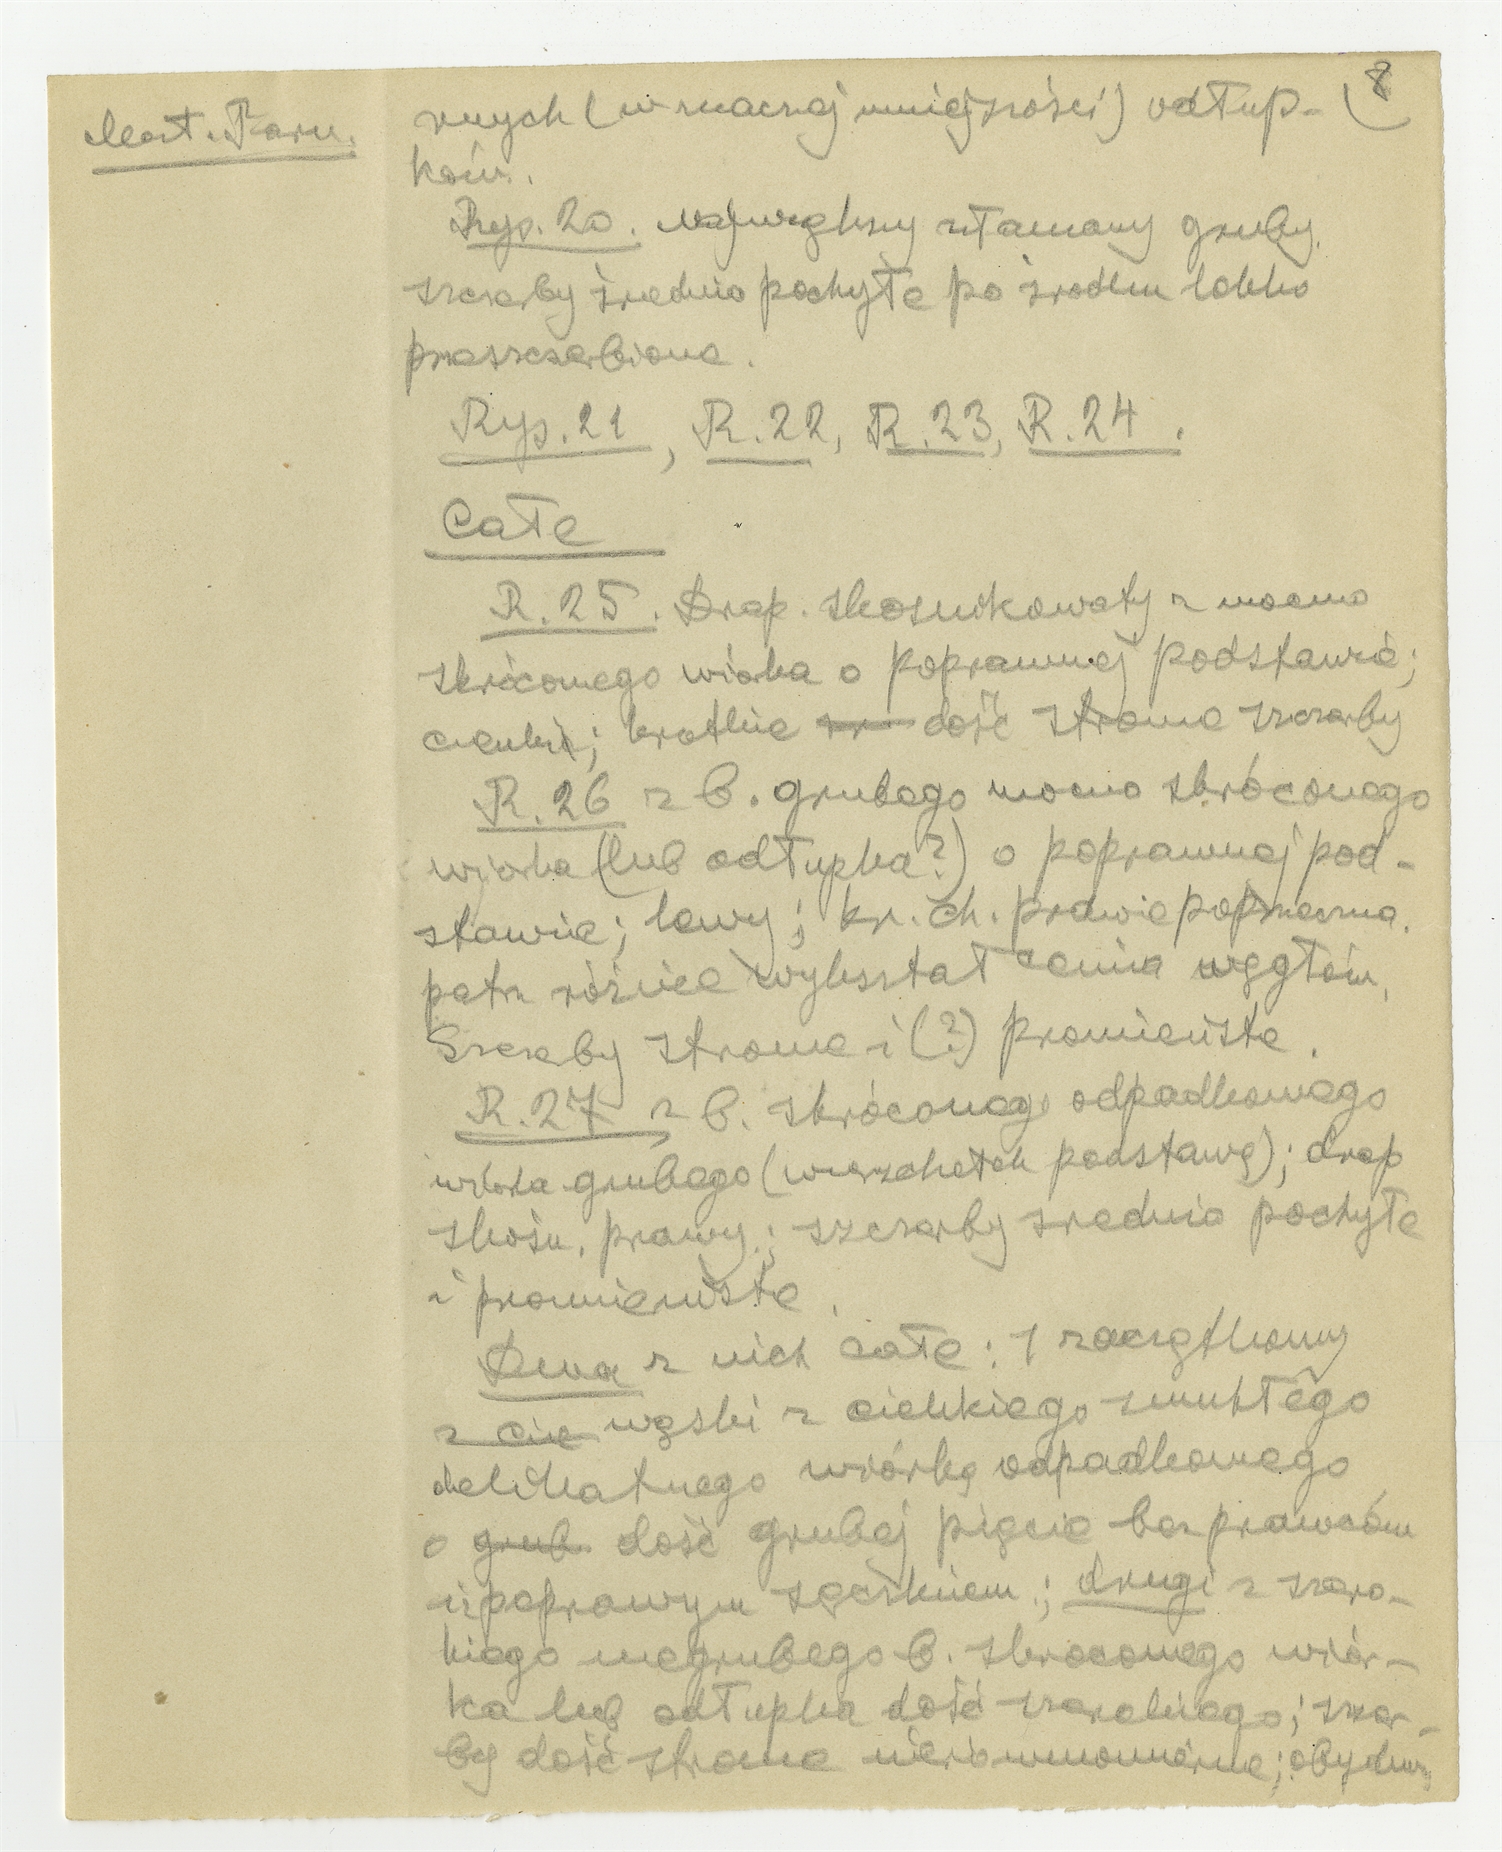 8
rnych (w znacznej mniejszości) odłup-
ków.
Rys. 20. Największy złamany gruby.
szczerby średnio pochyłe po środku lekko
przeszczerbione.
Rys. 21, R. 22, R. 23, R. 24.
Całe
R. 25. Drap. skośnikowaty z mocno
skróconego wiórka o poprawnej podstawie;
cienki; krótkie dość strome szczerby
R. 26 z b. grubego mocno skróconego
wiórka (lub odłupka?) o poprawnej pod-
stawie; lewy; kr. ch. prawie poprzeczna.
patrz różnice wykształcenia węgłów,
Szczerby strome i (?) promieniste.
R. 27 z b. skróconego odpadkowego
wiórka grubego (wierzchołek podstawą); drap
skośn. prawy; szczerby średnio pochyłe
i promieniste.
Dwa z nich całe: 1 zaczątkowy
z cie wąski z cienkiego smukłego
delikatnego wiórka odpadkowego
o grub. dość grubej pięcie bez prawców
i poprawym sęczkiem; drugi z szero-
kiego niegrubego b. skróconego wiór-
ka lub odłupka dość szerokiego; szczer-
by dość strome nierównomierne; obydwa